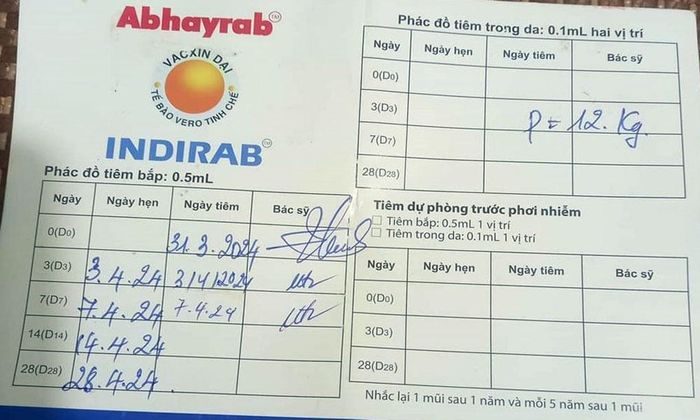 Abhayrab™
VACXIN DẠI
TẾ BÀO VERO TINH CHẾ
INDIRAB™
Phác đồ tiêm bắp: 0.5mL
Ngày Ngày hẹn Ngày tiêm Bác sỹ
0(D0) 31.3.2024
3(D3) 3.4.24 3/4/2024
7(D7) 7.4.24 7.4.24
14(D14) 14.4.24
28(D28) 28.4.24
Phác đồ tiêm trong da: 0.1mL hai vị trí
Ngày Ngày hẹn Ngày tiêm Bác sỹ
0(D0)
3(D3)
P = 12. Kg.
7(D7)
28(D28)
Tiêm dự phòng trước phơi nhiễm
Tiêm bắp: 0.5mL 1 vị trí
Tiêm trong da: 0.1mL 1 vị trí
Ngày Ngày hẹn Ngày tiêm Bác sỹ
0(D0)
3(D3)
28(D28)
Nhắc lại 1 mũi sau 1 năm và mỗi 5 năm sau 1 mũi